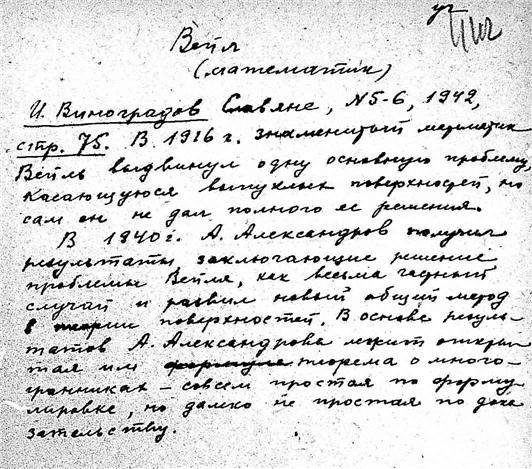 уч
Вейль
(математик)
И. Виноградов Славяне, N5-6, 1942,
стр. 75. В 1916 г. знаменитый математик
Вейль выдвинул одну основную проблему,
касающуюся выпуклых поверхностей, но
сам он не дал полного ее решения.
В 1940 г. А. Александров получил
результаты заключающие решение
проблемы Вейля, как весьма частный
случай и развил новый общий метод
в теории поверхностей. В основе резуль-
татов А. Александрова лежит откры-
тая им теорема о много-
гранниках - совсем простая по форму
лировке, но далеко не простая по дока
зательству.